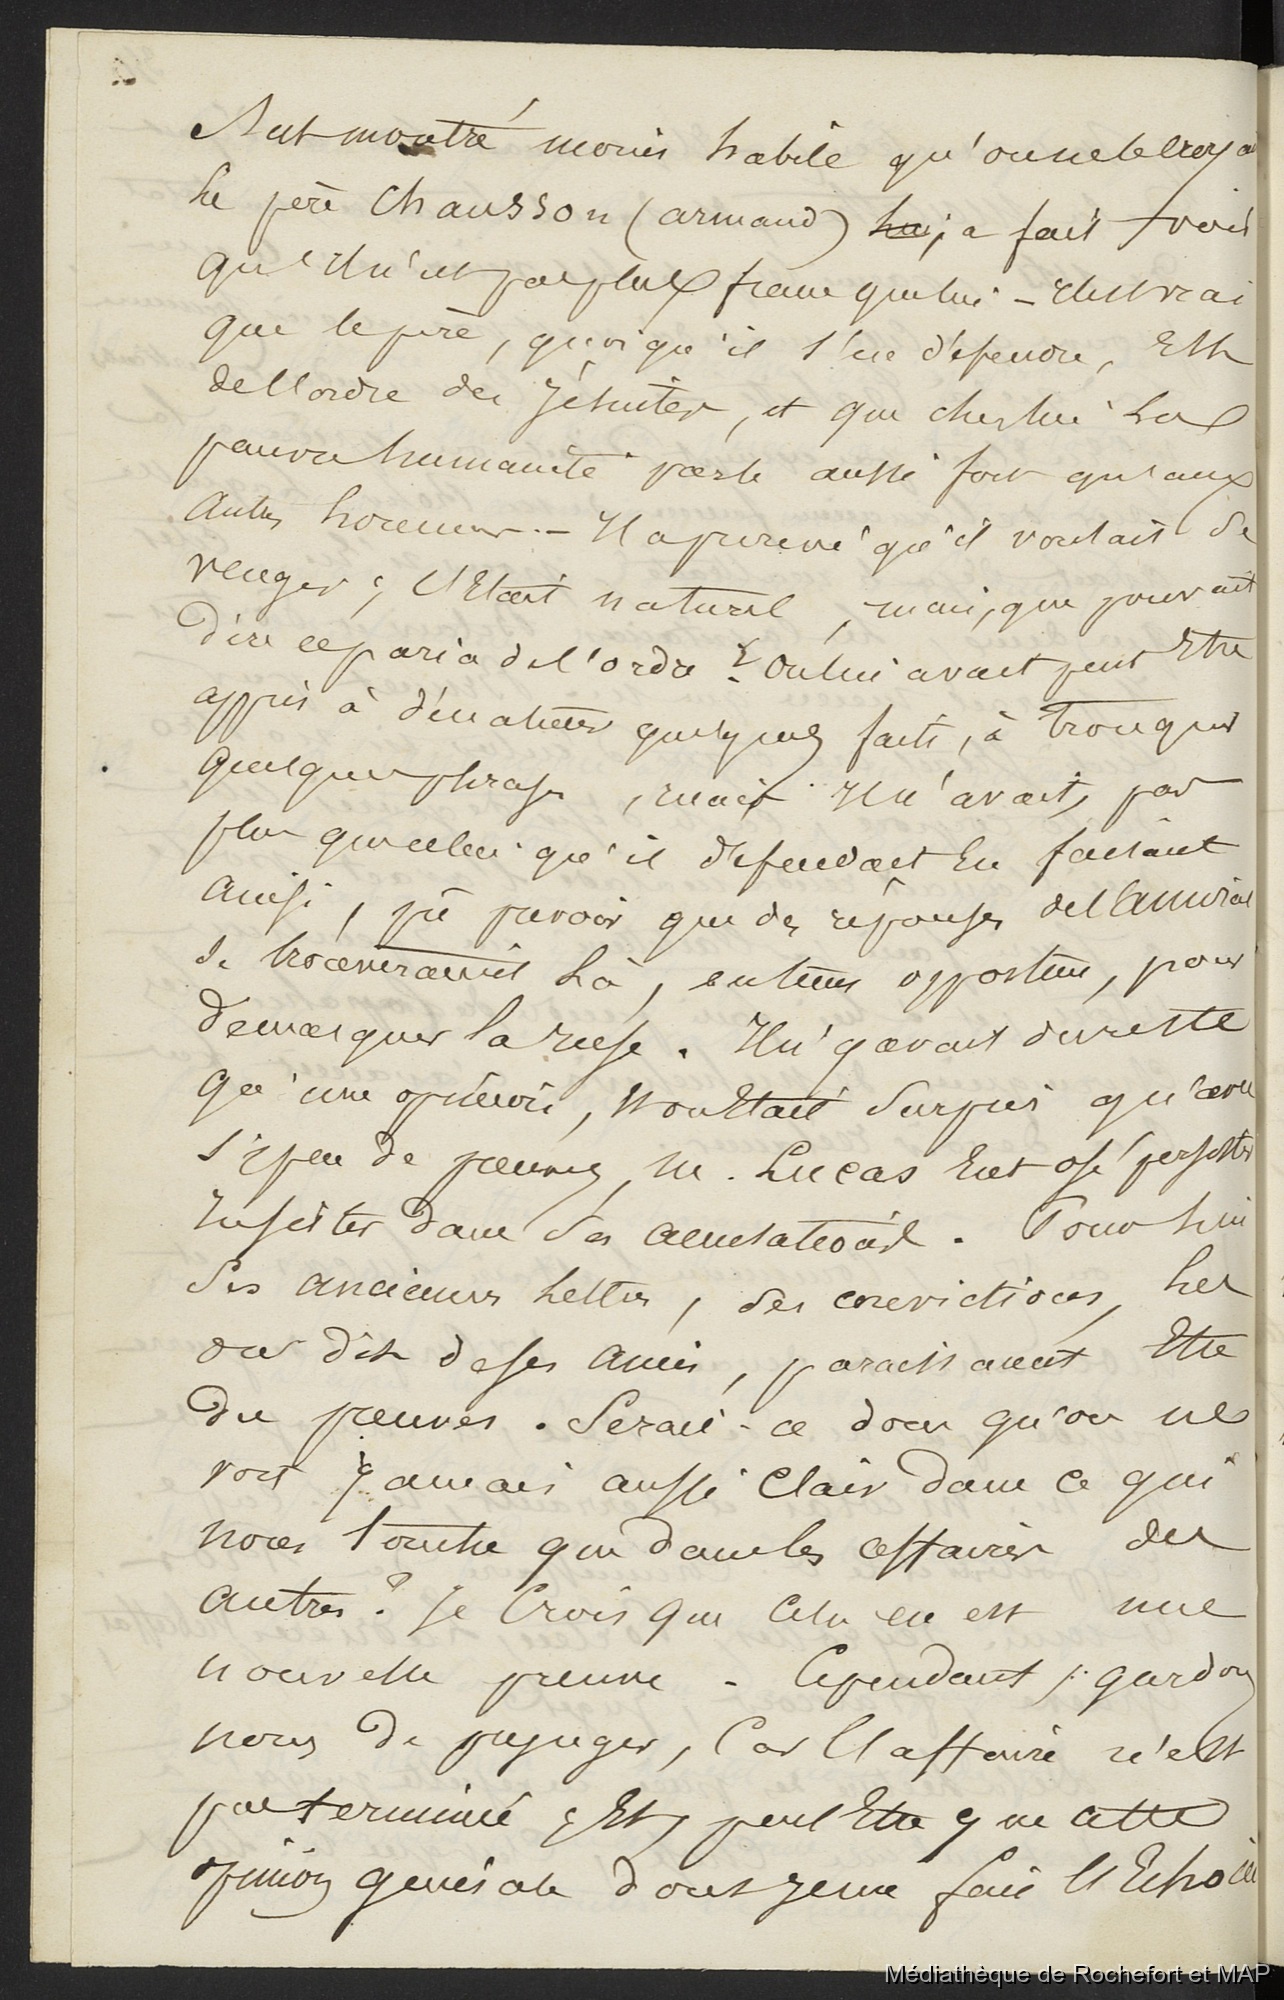 s'est montré moins habile qu'on ne le croya
Le père Chausson (armand) lui, a fait voir
qu'il n'est pas plus franc que lui – il est vrai
que le père, quoiqu'il s'en défende, est
de l'ordre des jésuites, et que chez lui la
pauvre humanité parle aussi fort qu'aux
autres hommes. – Il a prouvé qu'il voulait se
venger ; c'était naturel, mais, que pouvait
dire ce paria de l'ordre ? on lui avait peut être
appris à dénaturer quelques faits, à tronquer
quelques phrases, mais il n'avait, pas
plus que celui qu'il défendait en faisant
ainsi, pu prévoir que des réponses de l'amiral
se trouveraient là, en temps opportun, pour
démasquer la ruse. Il n'y avait du reste
qu'une opinion, on était surpris qu'avec
si peu de preuves, M. Lucas eut osé persister
insister dans ses accusations. Pour lui
ses anciennes lettres, ses convictions, les
on dit de ses amis, paraissaient être
des preuves. Serait-ce donc qu'on ne
voit jamais aussi clair dans ce qui
nous touche que dans les affaires des
autres ? je crois que cela en est une
nouvelle preuve. Cependant, gardons
nous de préjuger, car l'affaire n'est
pas terminée, et, peut être que cette
opinion générale dont je me fais l'écho ici
Médiathèque de Rochefort et MAP